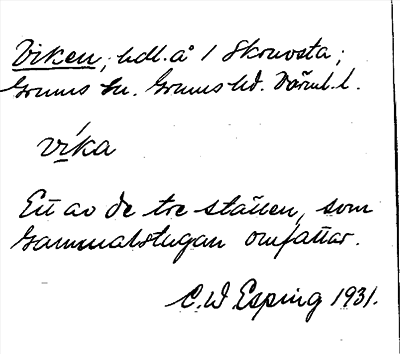 Viken, hdl. å 1 Skruvsta;
Grums sn. Grums hd. Värml. l.
vika
Ett av de tre ställen, som
Gammalstugan omfattar.
C. W Esping 1931.